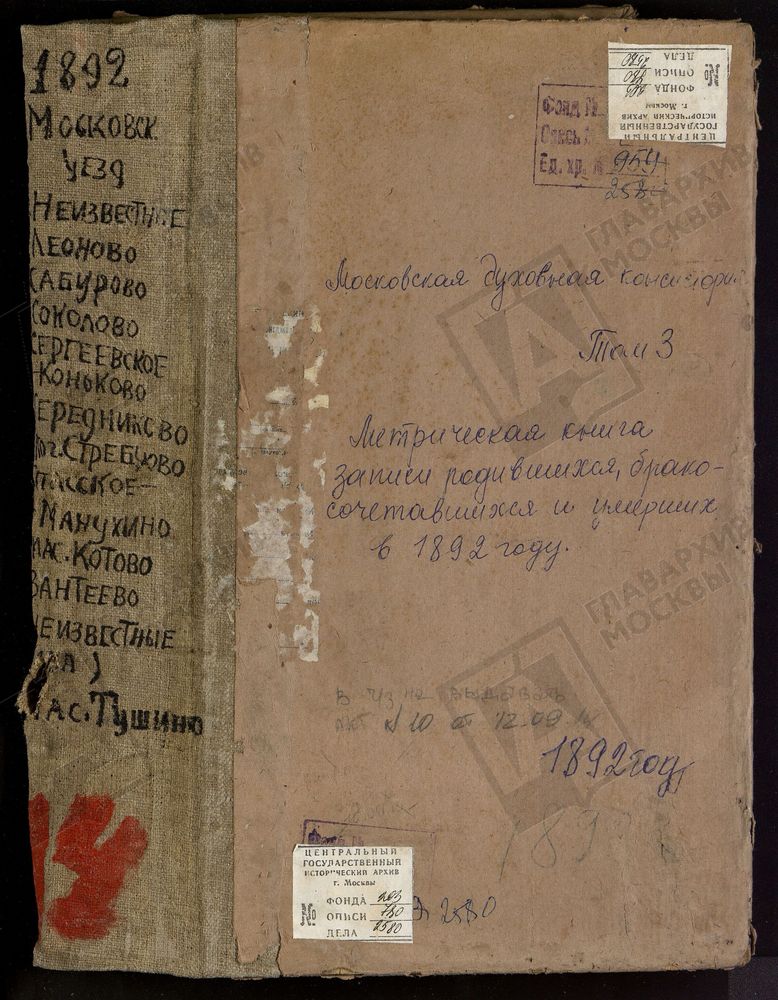 1892
Московск.
уезд
Неизвестные
Леоново
Сабурово
Соколово
Сергеевское
Коньково
Середниково
пог. Стребуково
Спасское-
Манухино
Котово
Вантеево
Неизвестные
Тушино
ЦЕНТРАЛЬНЫЙ
ГОСУДАРСТВЕННЫЙ
ИСТОРИЧЕСКИЙ АРХИВ
г. Москвы
№
ФОНДА 203
ОПИСИ 780
ДЕЛА 2580
Фонд №
Опись
Ед. хр. № 954
258
Московская духовная консистория
Том 3
Метрическая книга
записи родившихся, брако-
сочетавшихся и умерших
в 1892 году.
В ч/з не выдавать
акт №10 от 12.09
1892 год
189
ЦЕНТРАЛЬНЫЙ
ГОСУДАРСТВЕННЫЙ
ИСТОРИЧЕСКИЙ АРХИВ
г. Москвы
№
ФОНДА 203
ОПИСИ 780
ДЕЛА 2580
2580
ГЛАВАРХИВ
МОСКВЫ
ГЛАВАРХИВ
МОСКВЫ